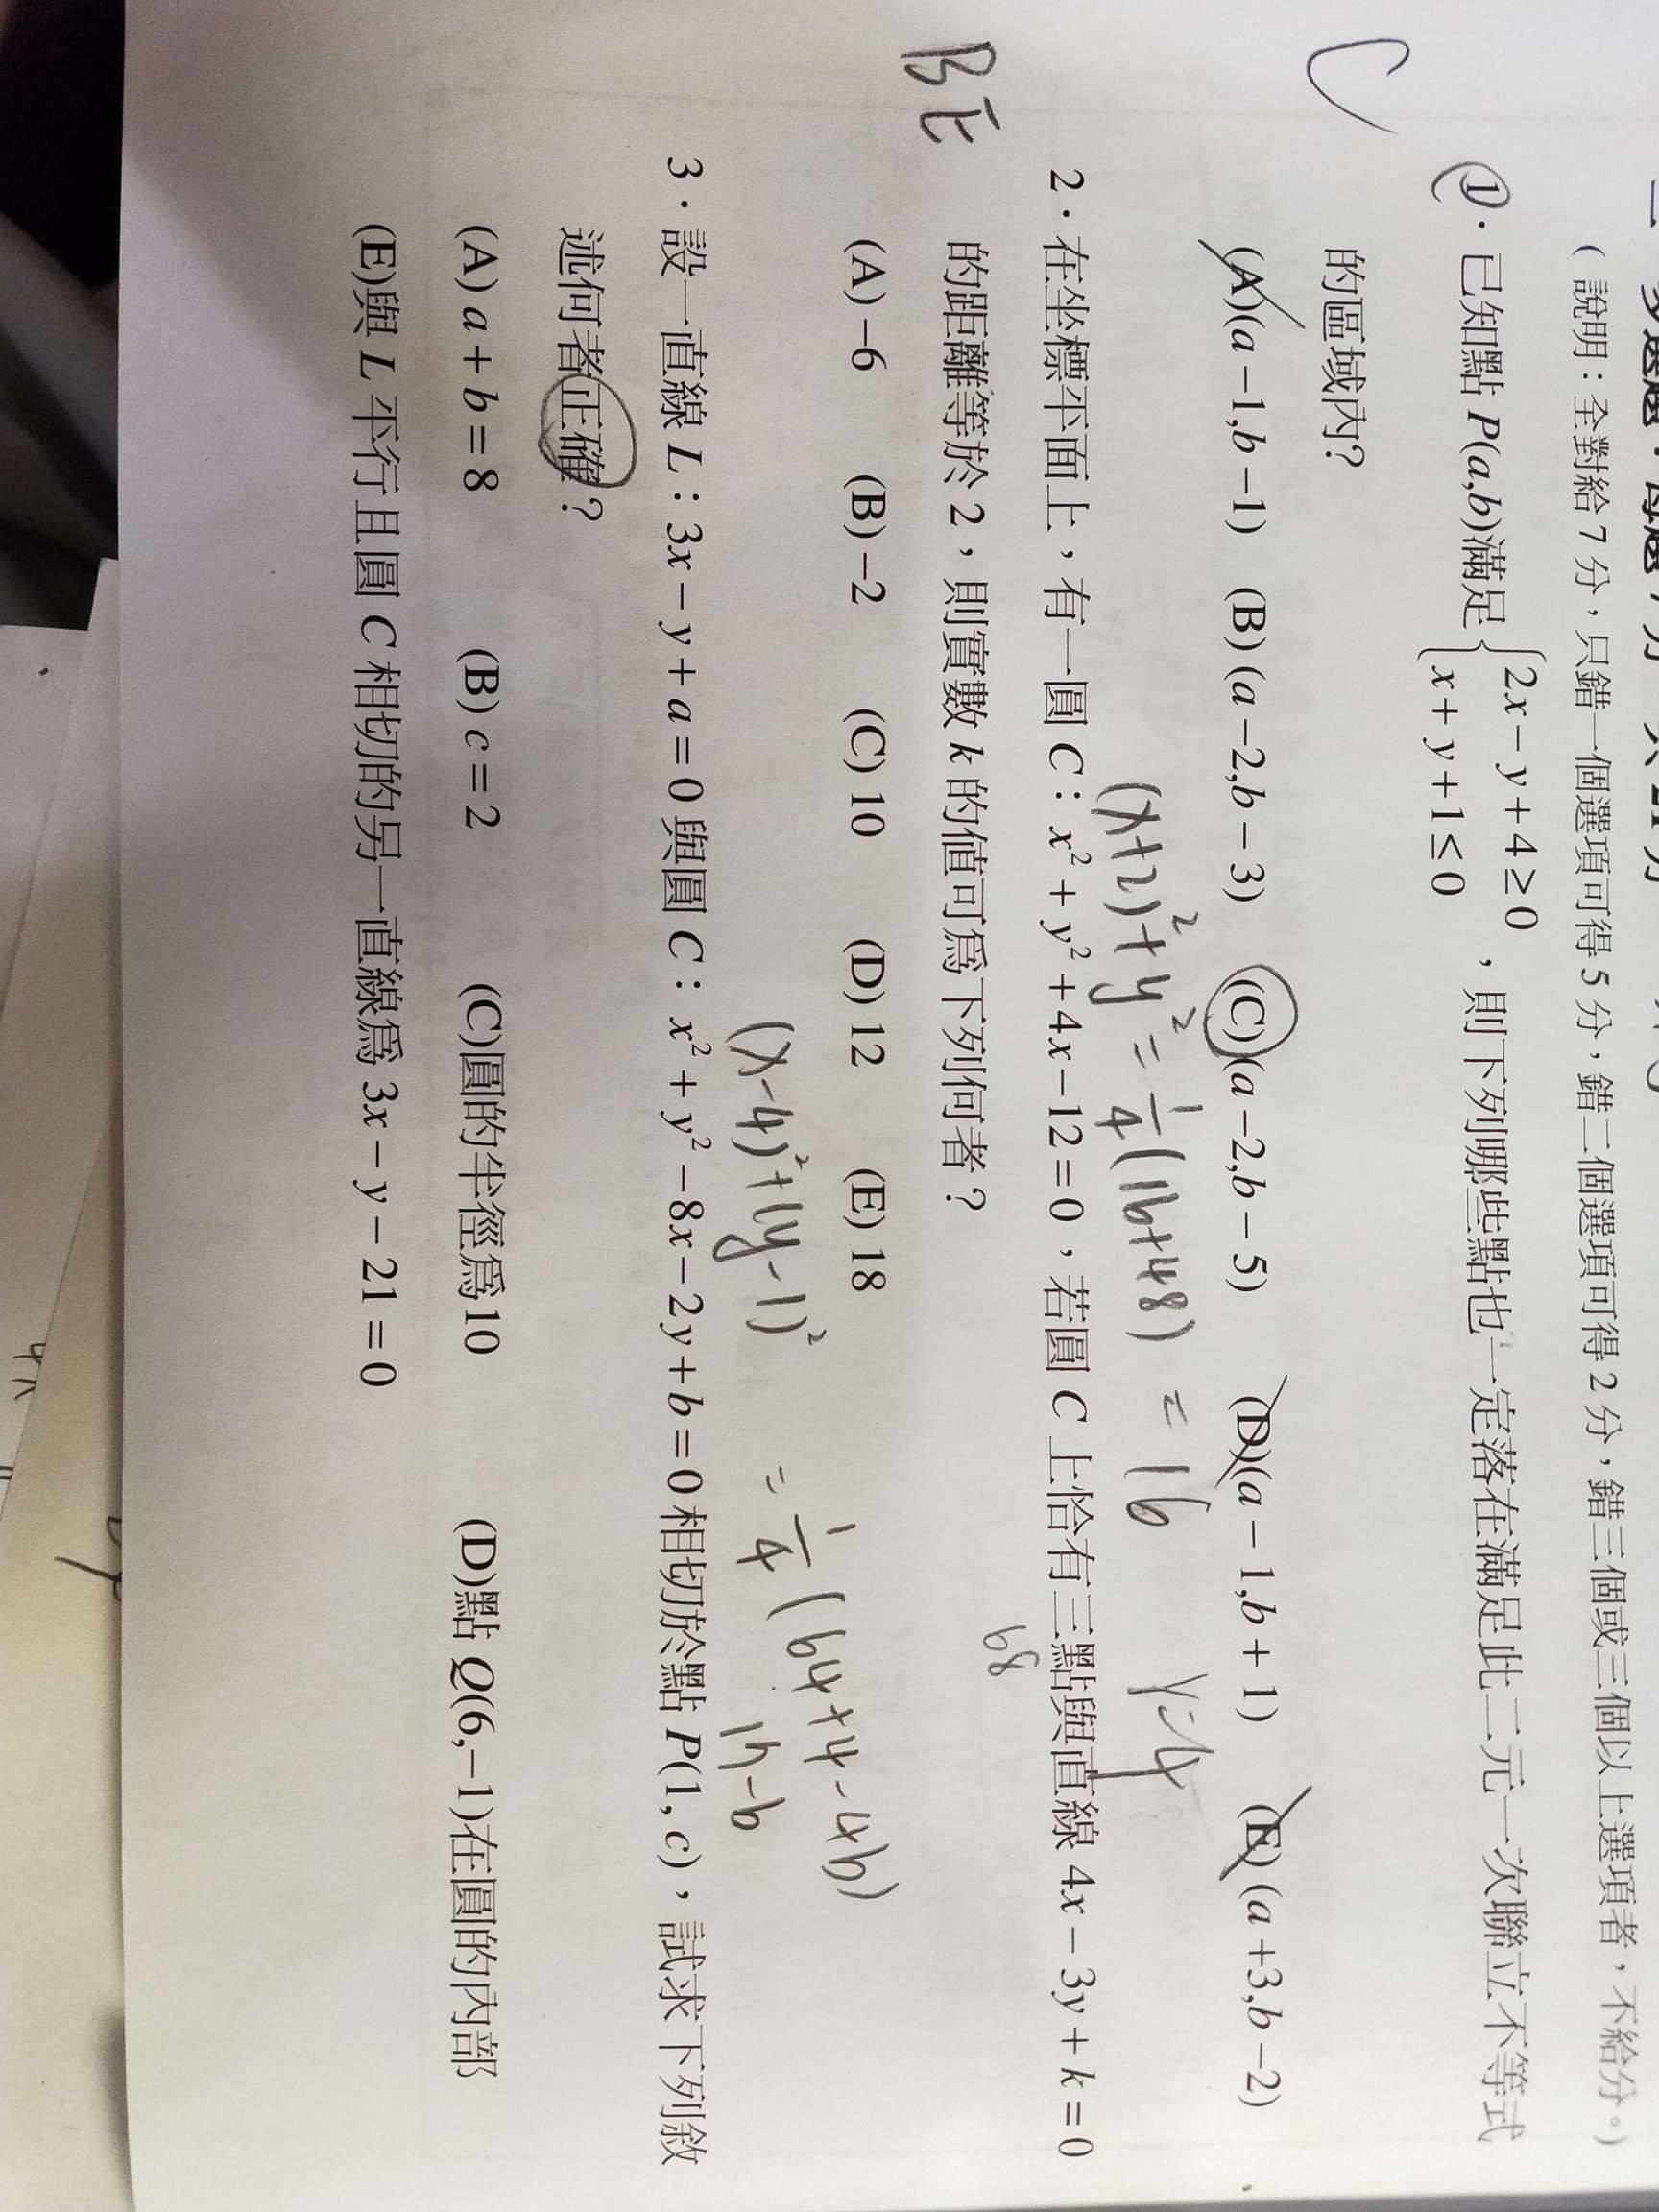 (說明:全對給7分,只錯一個選項可得5分,錯二個選項可得2分,錯三個或三個以上選項者,不給分。)
C
1. 已知點 P(a,b)滿足 { 2x−y+4≥0
x+y+1≤0 ,則下列哪些點也一定落在滿足此二元一次聯立不等式
的區域內?
(A)(a−1,b−1) (B)(a−2,b−3) (C)(a−2,b−5) (D)(a−1,b+1) (E)(a+3,b−2)
(x+2)²+y²=1/4(16+48) = 16 r=4
BE
2.在坐標平面上,有一圓 C:x²+y²+4x−12=0,若圓 C 上恰有三點與直線 4x−3y+k=0
68
的距離等於 2,則實數 k 的值可為下列何者?
(A)−6 (B)−2 (C)10 (D)12 (E)18
(x-4)²+(y-1)² = 1/4(64+4-4b)
17-b
3.設一直線 L:3x−y+a=0 與圓 C:x²+y²−8x−2y+b=0 相切於點 P(1,c),試求下列敘
述何者正確?
(A) a+b=8 (B) c=2 (C)圓的半徑為10 (D)點 Q(6,−1)在圓的內部
(E)與 L 平行且圓 C 相切的另一直線為 3x−y−21=0